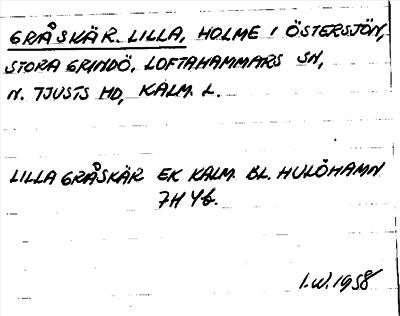 GRÅSKÄR. LILLA, HOLME I ÖSTERSJÖN,
STORA GRINDÖ, LOFTAHAMMARS SN,
N. TJUSTS HD, KALM. L.
LILLA GRÅSKÄR EK KALM. BL. HULÖHAMN
7H
I.W. 1958